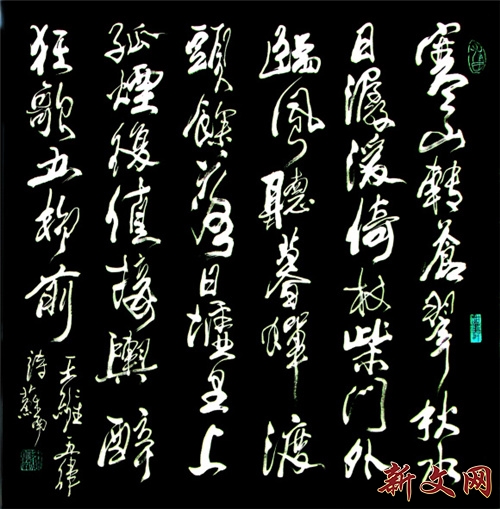 寒山轉蒼翠秋水
日潺湲倚杖柴門外
臨風聽暮蟬渡
頭餘落日墟里上
孤煙復值接輿醉
狂歌五柳前
王維五律
詩
新文网